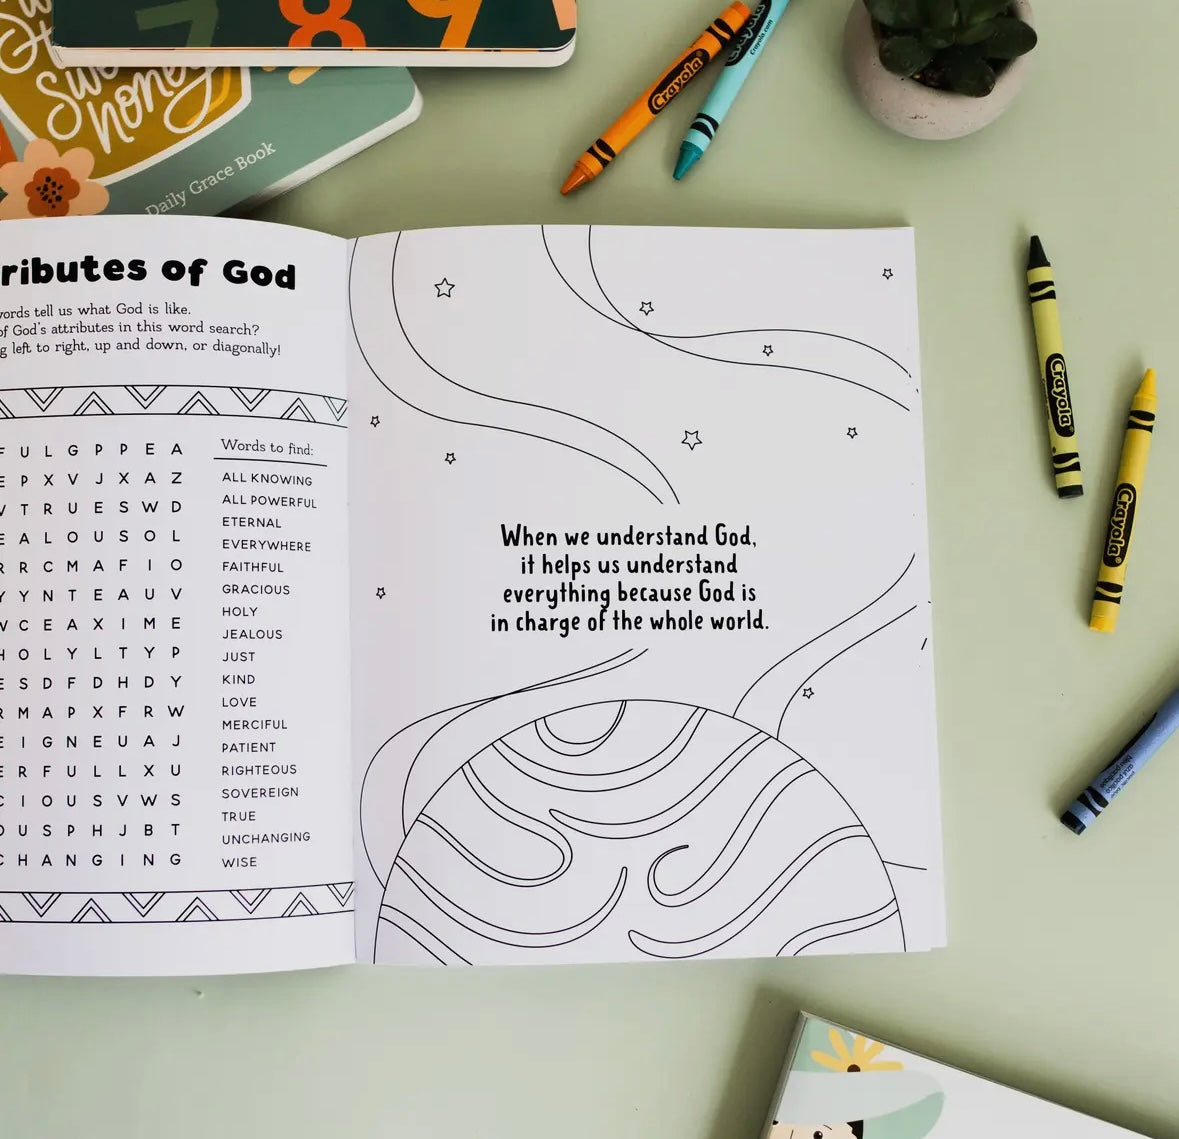 7 8 9
Sweeter
than
honey
Daily Grace Book
Crayola
Crayola
Crayola.com
ributes of God
words tell us what God is like.
of God's attributes in this word search?
g left to right, up and down, or diagonally!
F U L G P P E A
E P X V J X A Z
V T R U E S W D
E A L O U S O L
R R C M A F I O
Y Y N T E A U V
V C E A X I M E
H O L Y L T Y P
E S D F D H D Y
R M A P X F R W
E I G N E U A J
E R F U L L X U
C I O U S V W S
O U S P H J B T
C H A N G I N G
Words to find:
ALL KNOWING
ALL POWERFUL
ETERNAL
EVERYWHERE
FAITHFUL
GRACIOUS
HOLY
JEALOUS
JUST
KIND
LOVE
MERCIFUL
PATIENT
RIGHTEOUS
SOVEREIGN
TRUE
UNCHANGING
WISE
When we understand God,
it helps us understand
everything because God is
in charge of the whole world.
Crayola
Crayola